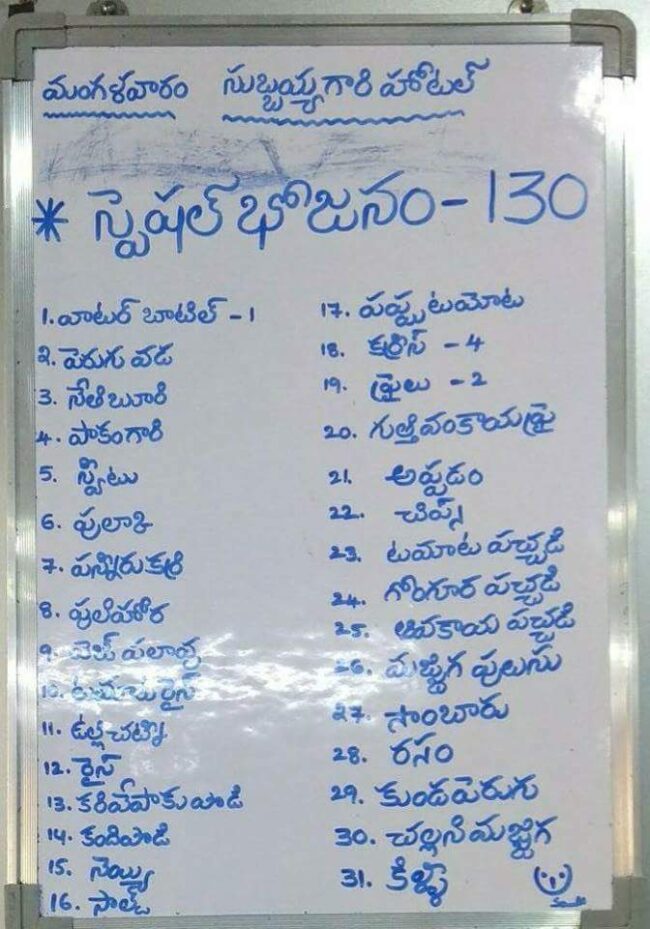 మంగళవారం సుబ్బయ్యగారి హోటల్
* స్పెషల్ భోజనం - 130
1. వాటర్ బాటిల్ - 1
2. పెరుగు వడ
3. నేతిబూరి
4. పాకంగారి
5. స్వీటు
6. పులాకి
7. పన్నీరు కర్రి
8. పులిహోర
9. వెజ్ పలావు
10. టమాటు రైస్
11. ఉల్లి చట్ని
12. రైస్
13. కరివేపాకు పొడి
14. కందిపొడి
15. నెయ్యి
16. సాల్ట్
17. పప్పు టమోట
18. కర్రీస్ - 4
19. ఫ్రైలు - 2
20. గుత్తివంకాయ ఫ్రై
21. అప్పడం
22. చిప్స్
23. టమాట పచ్చడి
24. గోంగూర పచ్చడి
25. ఆవకాయ పచ్చడి
26. మజ్జిగ పులుసు
27. సాంబారు
28. రసం
29. కుండపెరుగు
30. చల్లని మజ్జిగ
31. కిళ్ళీ